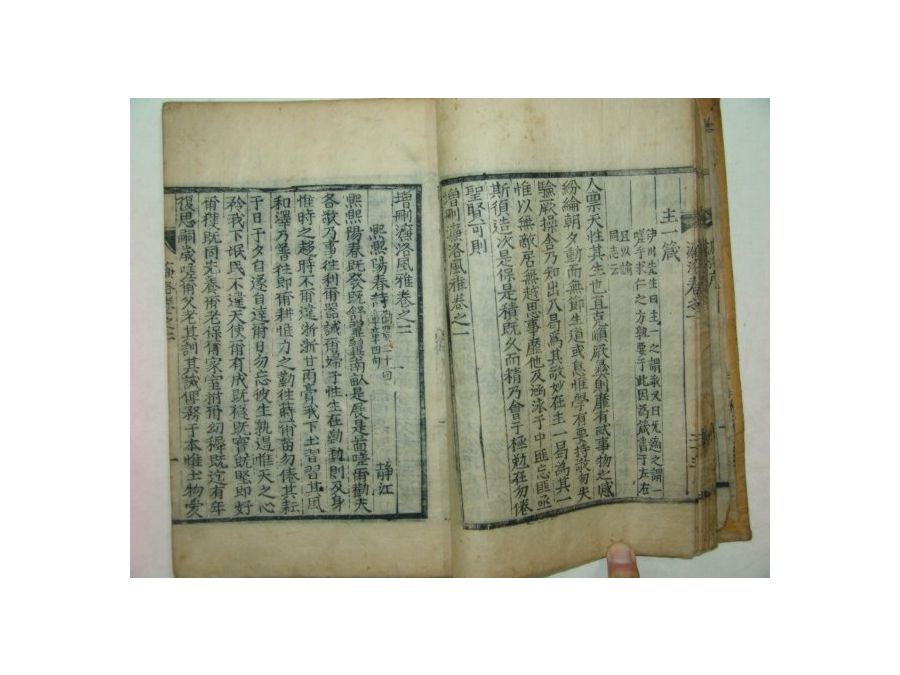 主一箴
伊川先生曰主一之謂敬又曰無適之謂一
嗟乎求仁之方孰要乎此因爲箴書于左右
且以諗
同志云
人禀天性其生也直克順厥彝則靡有忒事物之感
紛綸朝夕動而無節生道或息惟學有要持敬勿失
驗厥操舍乃知出入曷爲其敬妙在主一曷爲其一
惟以無敵居無越思事靡他及涵泳于中匪忘匪亟
斯須造次是保是積旣久而精乃會于極勉在勿倦
聖賢可則
增刪濂洛風雅卷之一
增刪濂洛風雅卷之二
熙熙陽春詩
靜江
熙熙陽春旣發旣舒翼翼南畝是展是菑嗟爾農夫
各敬乃事往利爾器誡爾婦子惟生在勤勤則及身
惟時之趨時不爾違浙浙甘雨膏我下土習習其風
和澤乃普往卽爾耕惟力之勤往蒔爾苗勿倦其耘
于日于夕自遂自達爾日勿忘彼生孰遏惟天之心
矜我下民民不違天使爾有成旣穫旣實旣堅卽好
爾獲旣同先養爾老保爾家室撫爾幼穉旣迄有年
復思嗣歲嗟爾父老其訓其誡俾務于本惟土物愛